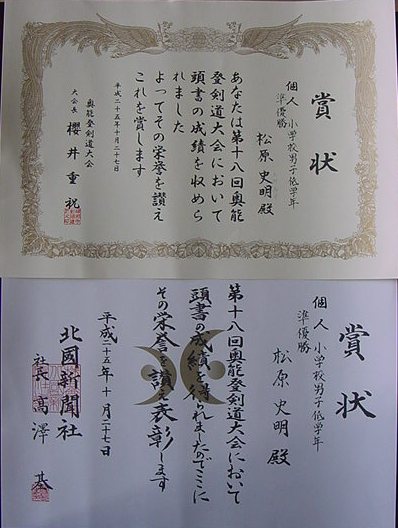 賞状
個人 小学校男子低学年
準優勝
松原史明殿
あなたは第十八回奥能
登剣道大会において
頭書の成績を収めら
れました
よってその栄誉を讃え
これを賞します
平成二十五年十月二十七日
奥能登剣道大会
大会長 櫻井重祝
賞状
個人 小学校男子低学年
準優勝
松原史明殿
第十八回奥能登剣道大会において
頭書の成績を得られましたのでここに
その栄誉を讃え表彰します
平成二十五年十月二十七日
北國新聞社
社長 高澤基